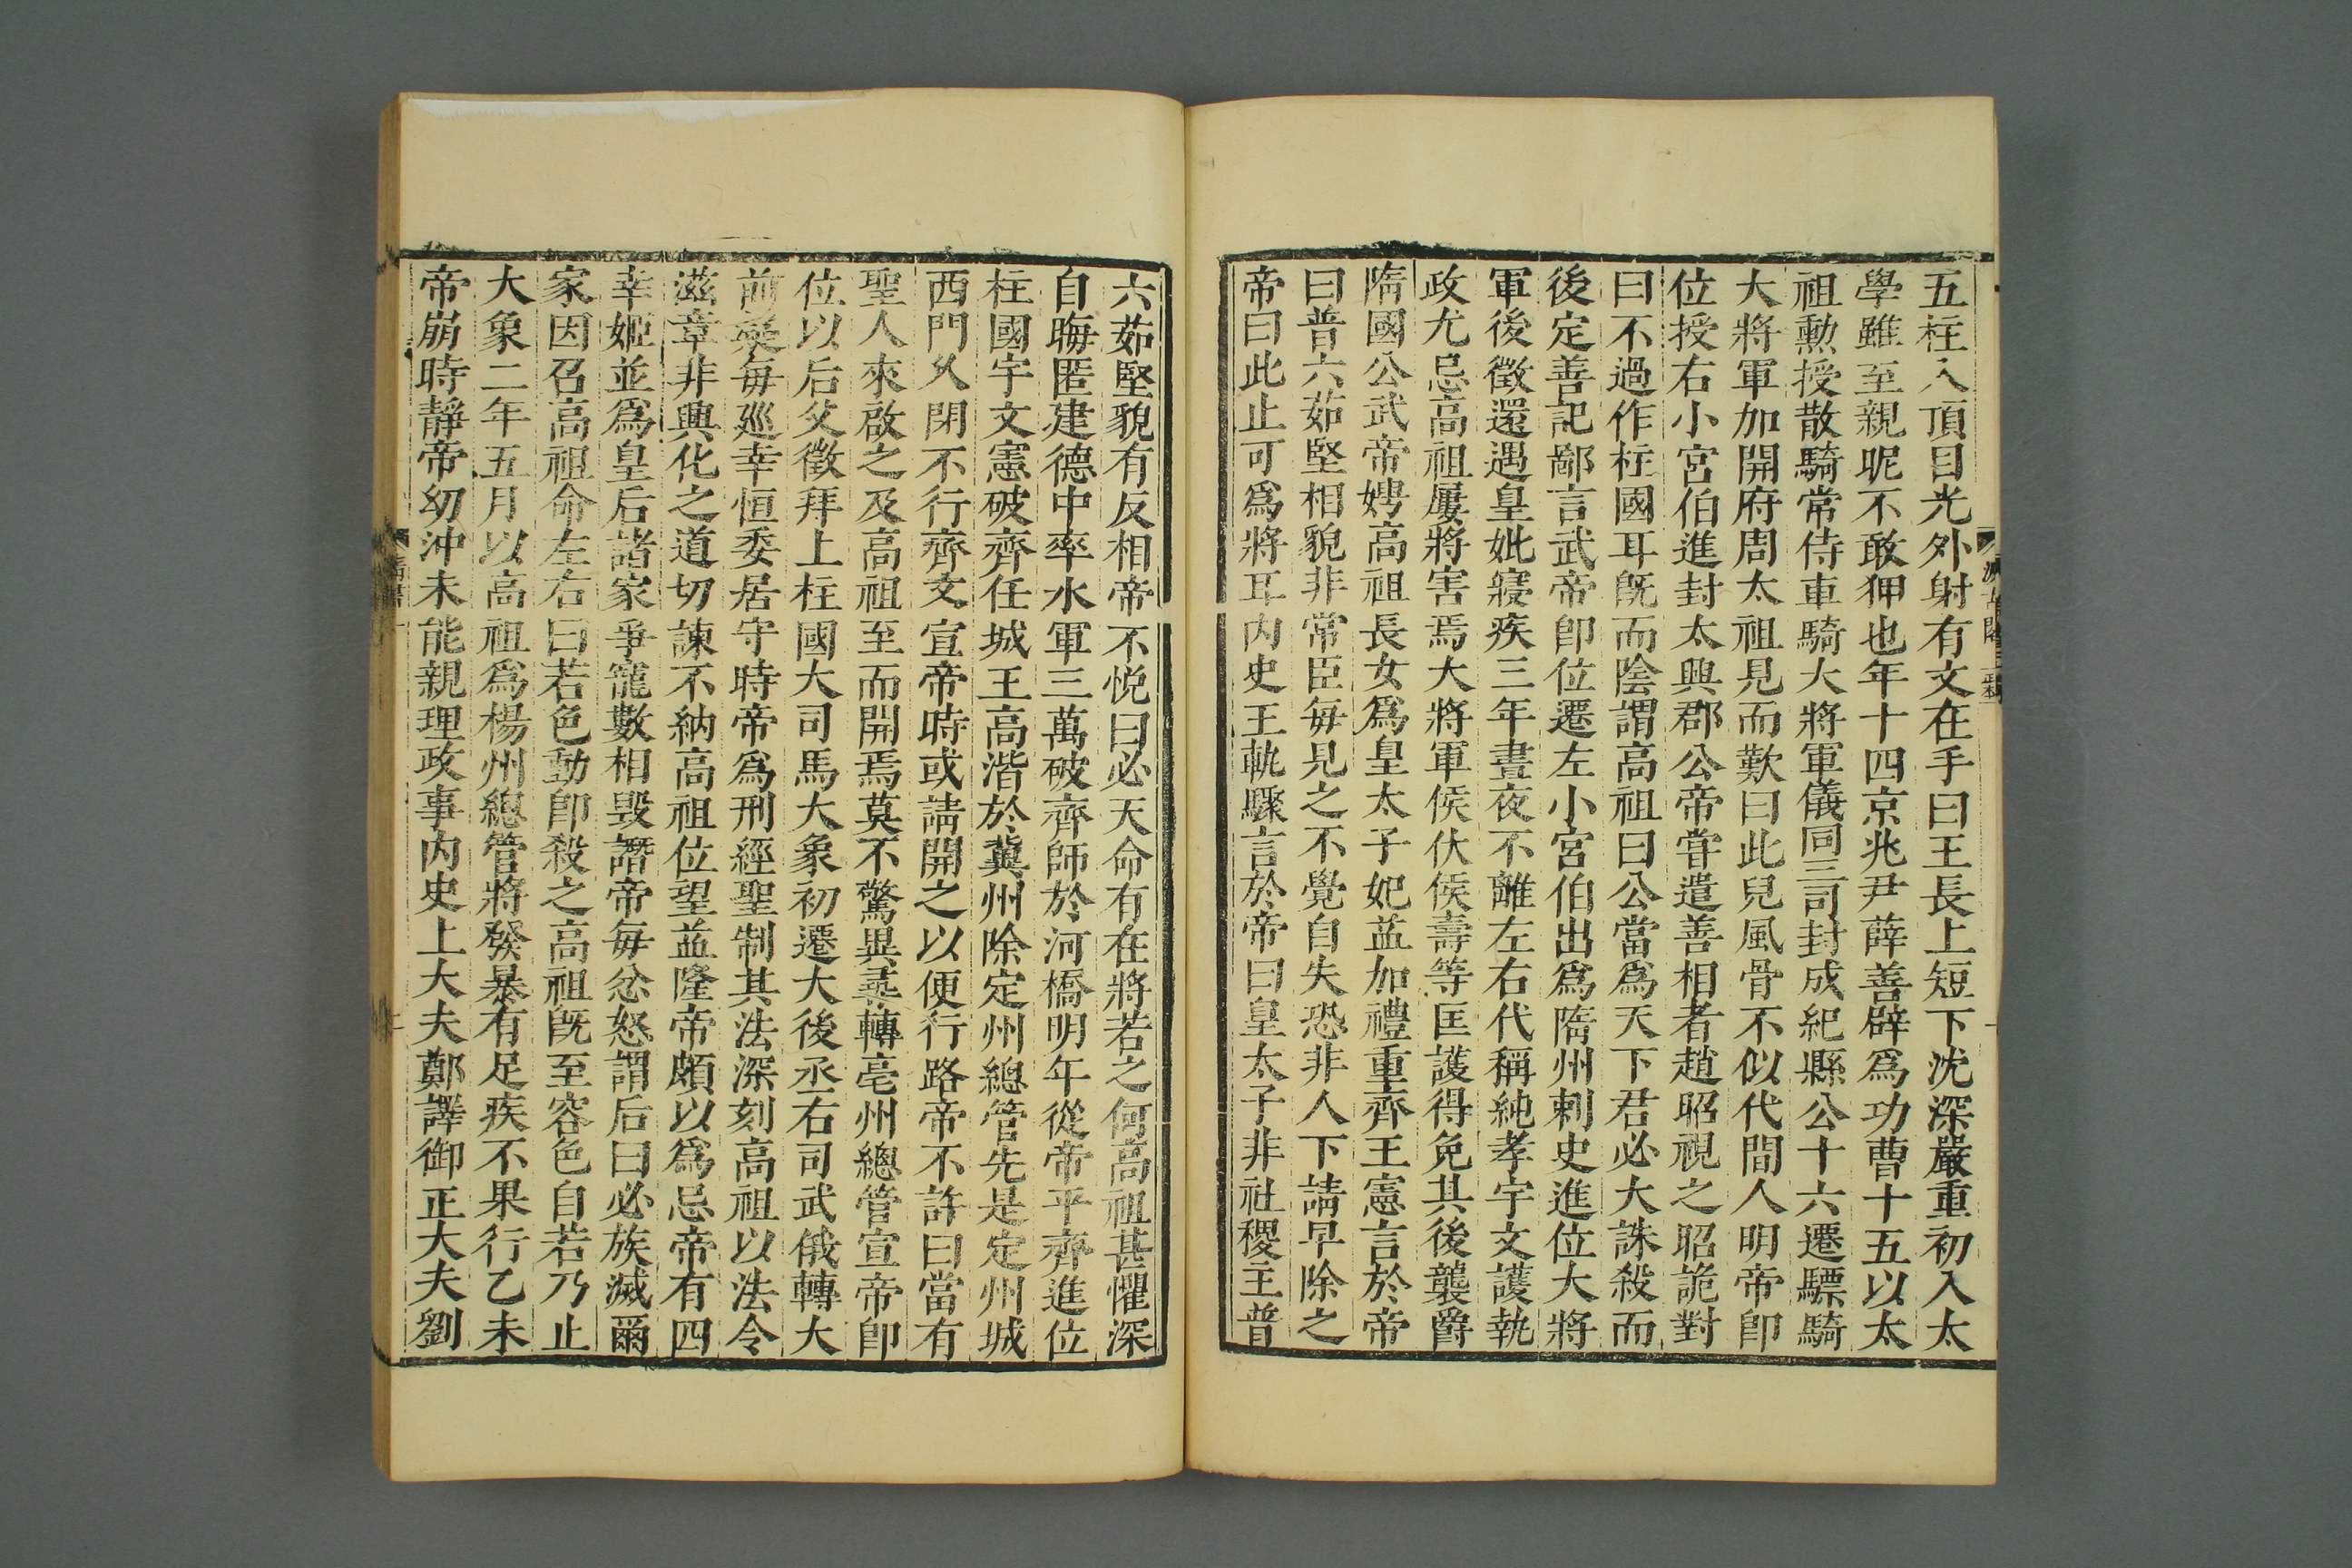 五柱入頂目光外射有文在手曰王長上短下沈深嚴重初入太
學雖至親昵不敢狎也年十四京兆尹薛善辟爲功曹十五以太
祖勳授散騎常侍車騎大將軍儀同三司封成紀縣公十六遷驃騎
大將軍加開府周太祖見而歎曰此兒風骨不似代間人明帝卽
位授右小宮伯進封太興郡公帝嘗遣善相者趙昭視之昭詭對
曰不過作柱國耳旣而陰謂高祖曰公當爲天下君必大誅殺而
後定善記鄙言武帝卽位遷左小宮伯出爲隋州刺史進位大將
軍後徵還遇皇妣寢疾三年晝夜不離左右代稱純孝宇文護執
政尤忌高祖屢將害焉大將軍侯伏侯壽等匡護得免其後襲爵
隋國公武帝娉高祖長女爲皇太子妃益加禮重齊王憲言於帝
曰普六茹堅相貌非常臣每見之不覺自失恐非人下請早除之
帝曰此止可爲將耳內史王軌驟言於帝曰皇太子非社稷主普
六茹堅貌有反相帝不悅曰必天命有在將若之何高祖甚懼深
自晦匿建德中率水軍三萬破齊師於河橋明年從帝平齊進位
柱國宇文憲破齊任城王高湝於冀州除定州總管先是定州城
西門久閉不行齊文宣帝時或請開之以便行路帝不許曰當有
聖人來啟之及高祖至而開焉莫不驚異尋轉亳州總管宣帝卽
位以后父徵拜上柱國大司馬大象初遷大後丞右司武俄轉大
前疑每巡幸恒委居守時帝爲刑經聖制其法深刻高祖以法令
滋章非興化之道切諫不納高祖位望益隆帝頗以爲忌帝有四
幸姬並爲皇后諸家爭寵數相毀譖帝每忿怒謂后曰必族滅爾
家因召高祖命左右曰若色動卽殺之高祖旣至容色自若乃止
大象二年五月以高祖爲楊州總管將發暴有足疾不果行乙未
帝崩時靜帝幼沖未能親理政事內史上大夫鄭譯御正大夫劉